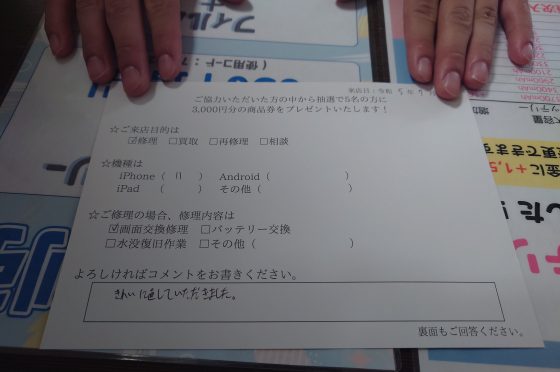 来店日：令和 5年
ご協力いただいた方の中から抽選で5名の方に
3,000円分の商品券をプレゼントいたします！
☆ご来店目的は
☑修理 □買取 □再修理 □相談
☆機種は
iPhone（ 11 ） Android（ ）
iPad （ ） その他（ ）
☆ご修理の場合、修理内容は
☑画面交換修理 □バッテリー交換
□水没復旧作業 □その他（ ）
よろしければコメントをお書きください。
きれいに直していただきました。
裏面もご回答ください。
フィルム
（使用コード：7
金に+1,5
更できます
した！